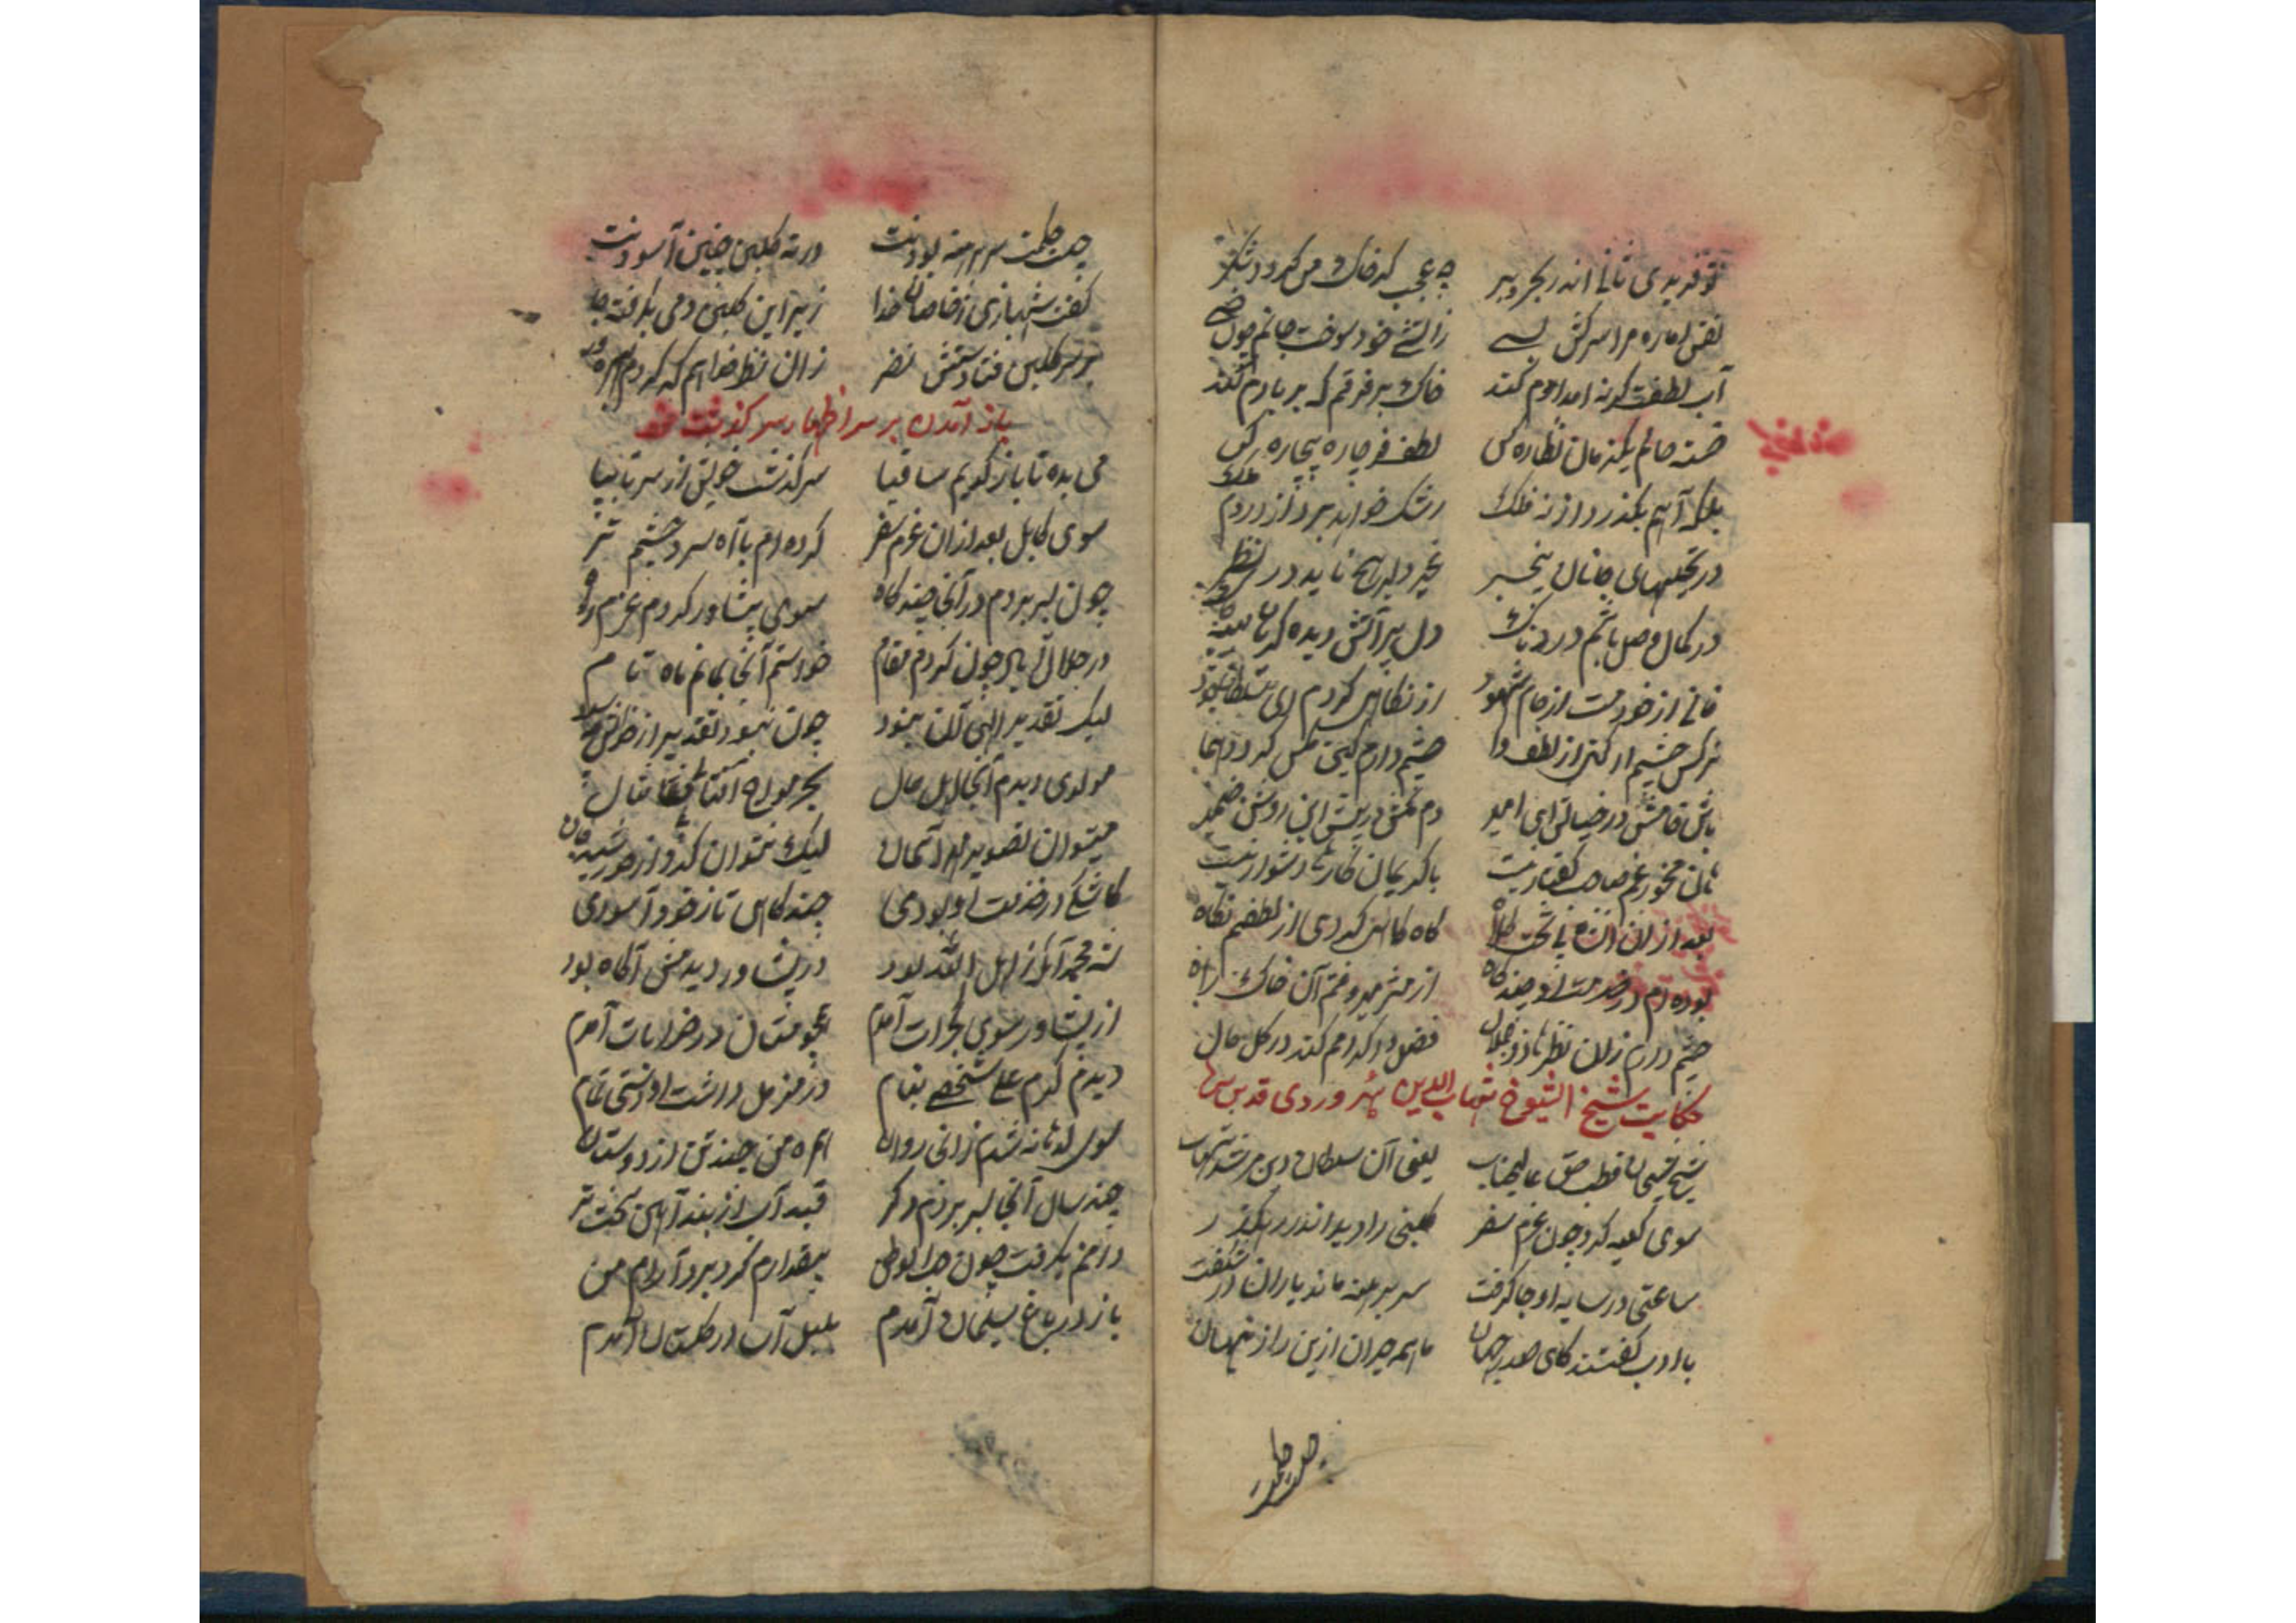 چه عجب که خاک من گردد شکر
نفس اماره مرا سرکش بسی زآتش خود سوخت جانم چون خسی
آب لطفت گرنه امدادم کند خاک بر فرقم که بر بادم کند
خسته حالم یکزمان نظاره کن لطف فرما چاره بیچاره کن
بلکه آهم بگذرد از نه فلک رشک خواهد برد از دردم ملک
در تجلیهای جانان بیخبر غیر دلبر هیچ ناید در نظر
در کمال وصل باشم دردناک دل پر آتش دیده گریان سینه چاک
فانی از خود مست از جام شهود از نگاهی کردم ای سلطان جود
نرگس چشم ار کنی از لطف وا چشم دارم گیتی مس گردد طلا
باش خامش در خیالی ای امیر دم مکش در پیش این روشن ضمیر
با کریمان کارها دشوار نیست
بعد از ان گاه گاهی کردی از لطفم نگاه
بوده ام در خدمت او چند گاه از مژه میروفتم آن خاک راه
چشم دارم زان نظر تا ذوالجلال فضل و اکرامم کند در کل حال
حکایت شیخ الشیوخ شهاب الدین سهروردی قدس سره
شیخ شیخان قطب حق عالیجناب یعنی آن سلطان دین مرشد شهاب
سوی کعبه کرد چون عزم سفر گلبنی را دید اندر رهگذر
ساعتی در سایه او جا گرفت سر برهنه ماند یاران در شگفت
با ادب گفتند کای صدر جهان ما همه حیران ازین راز نهان
چیست حکمت
چیست حکمت سر برهنه بودنت در ته گلبن چنین آسودنت
گفت شهبازی ز خاصان خدا زیر این گلبن دمی بگرفته جا
بر سر گلبن فتادستش نظر زان نظر
باز آمدن بر سر اظهار سرگذشت خود
می بده تا باز گویم ساقیا سرگذشت خویش از سر تا بپا
سوی کابل بعد ازان عزم سفر کرده ام با آه سرد و چشم تر
چون بسر بردم در آنجا چند گاه سوی پشاور کردم عزم راه
در جلال آباد چون کردم مقام خواستم آنجا بمانم ماه تمام
لیک تقدیر الهی آن نبود چون نبود تقدیر از خواهش چه سود
مولوی دیدم آنجا اهل حال بحر مواج
میتوان تصویر مهر آسمان لیک نتوان کرد از خورشید جان
کاشکی در خدمت او بودمی چند گاهی تا ز خود آسودمی
شه محمد آنکه از اهل الله بود در پشاور دیدمش آگاه بود
از پشاور سوی گجرات آمدم همچو مستان در خرابات آمدم
دیدم کرم علی شخصی بنام در مزمل داشت او مستی تمام
سوی لدهانه شدم زانجا روان همره من چند تن از دوستان
چند سال آنجا بسر بردم دگر قید آب از بند آهن سخت تر
دامنم بگرفت چون حب الوطن بیقرارم کرد برد آرام من
باز در باغ سلیمان آمدم بلبل آسا در گلستان آمدم